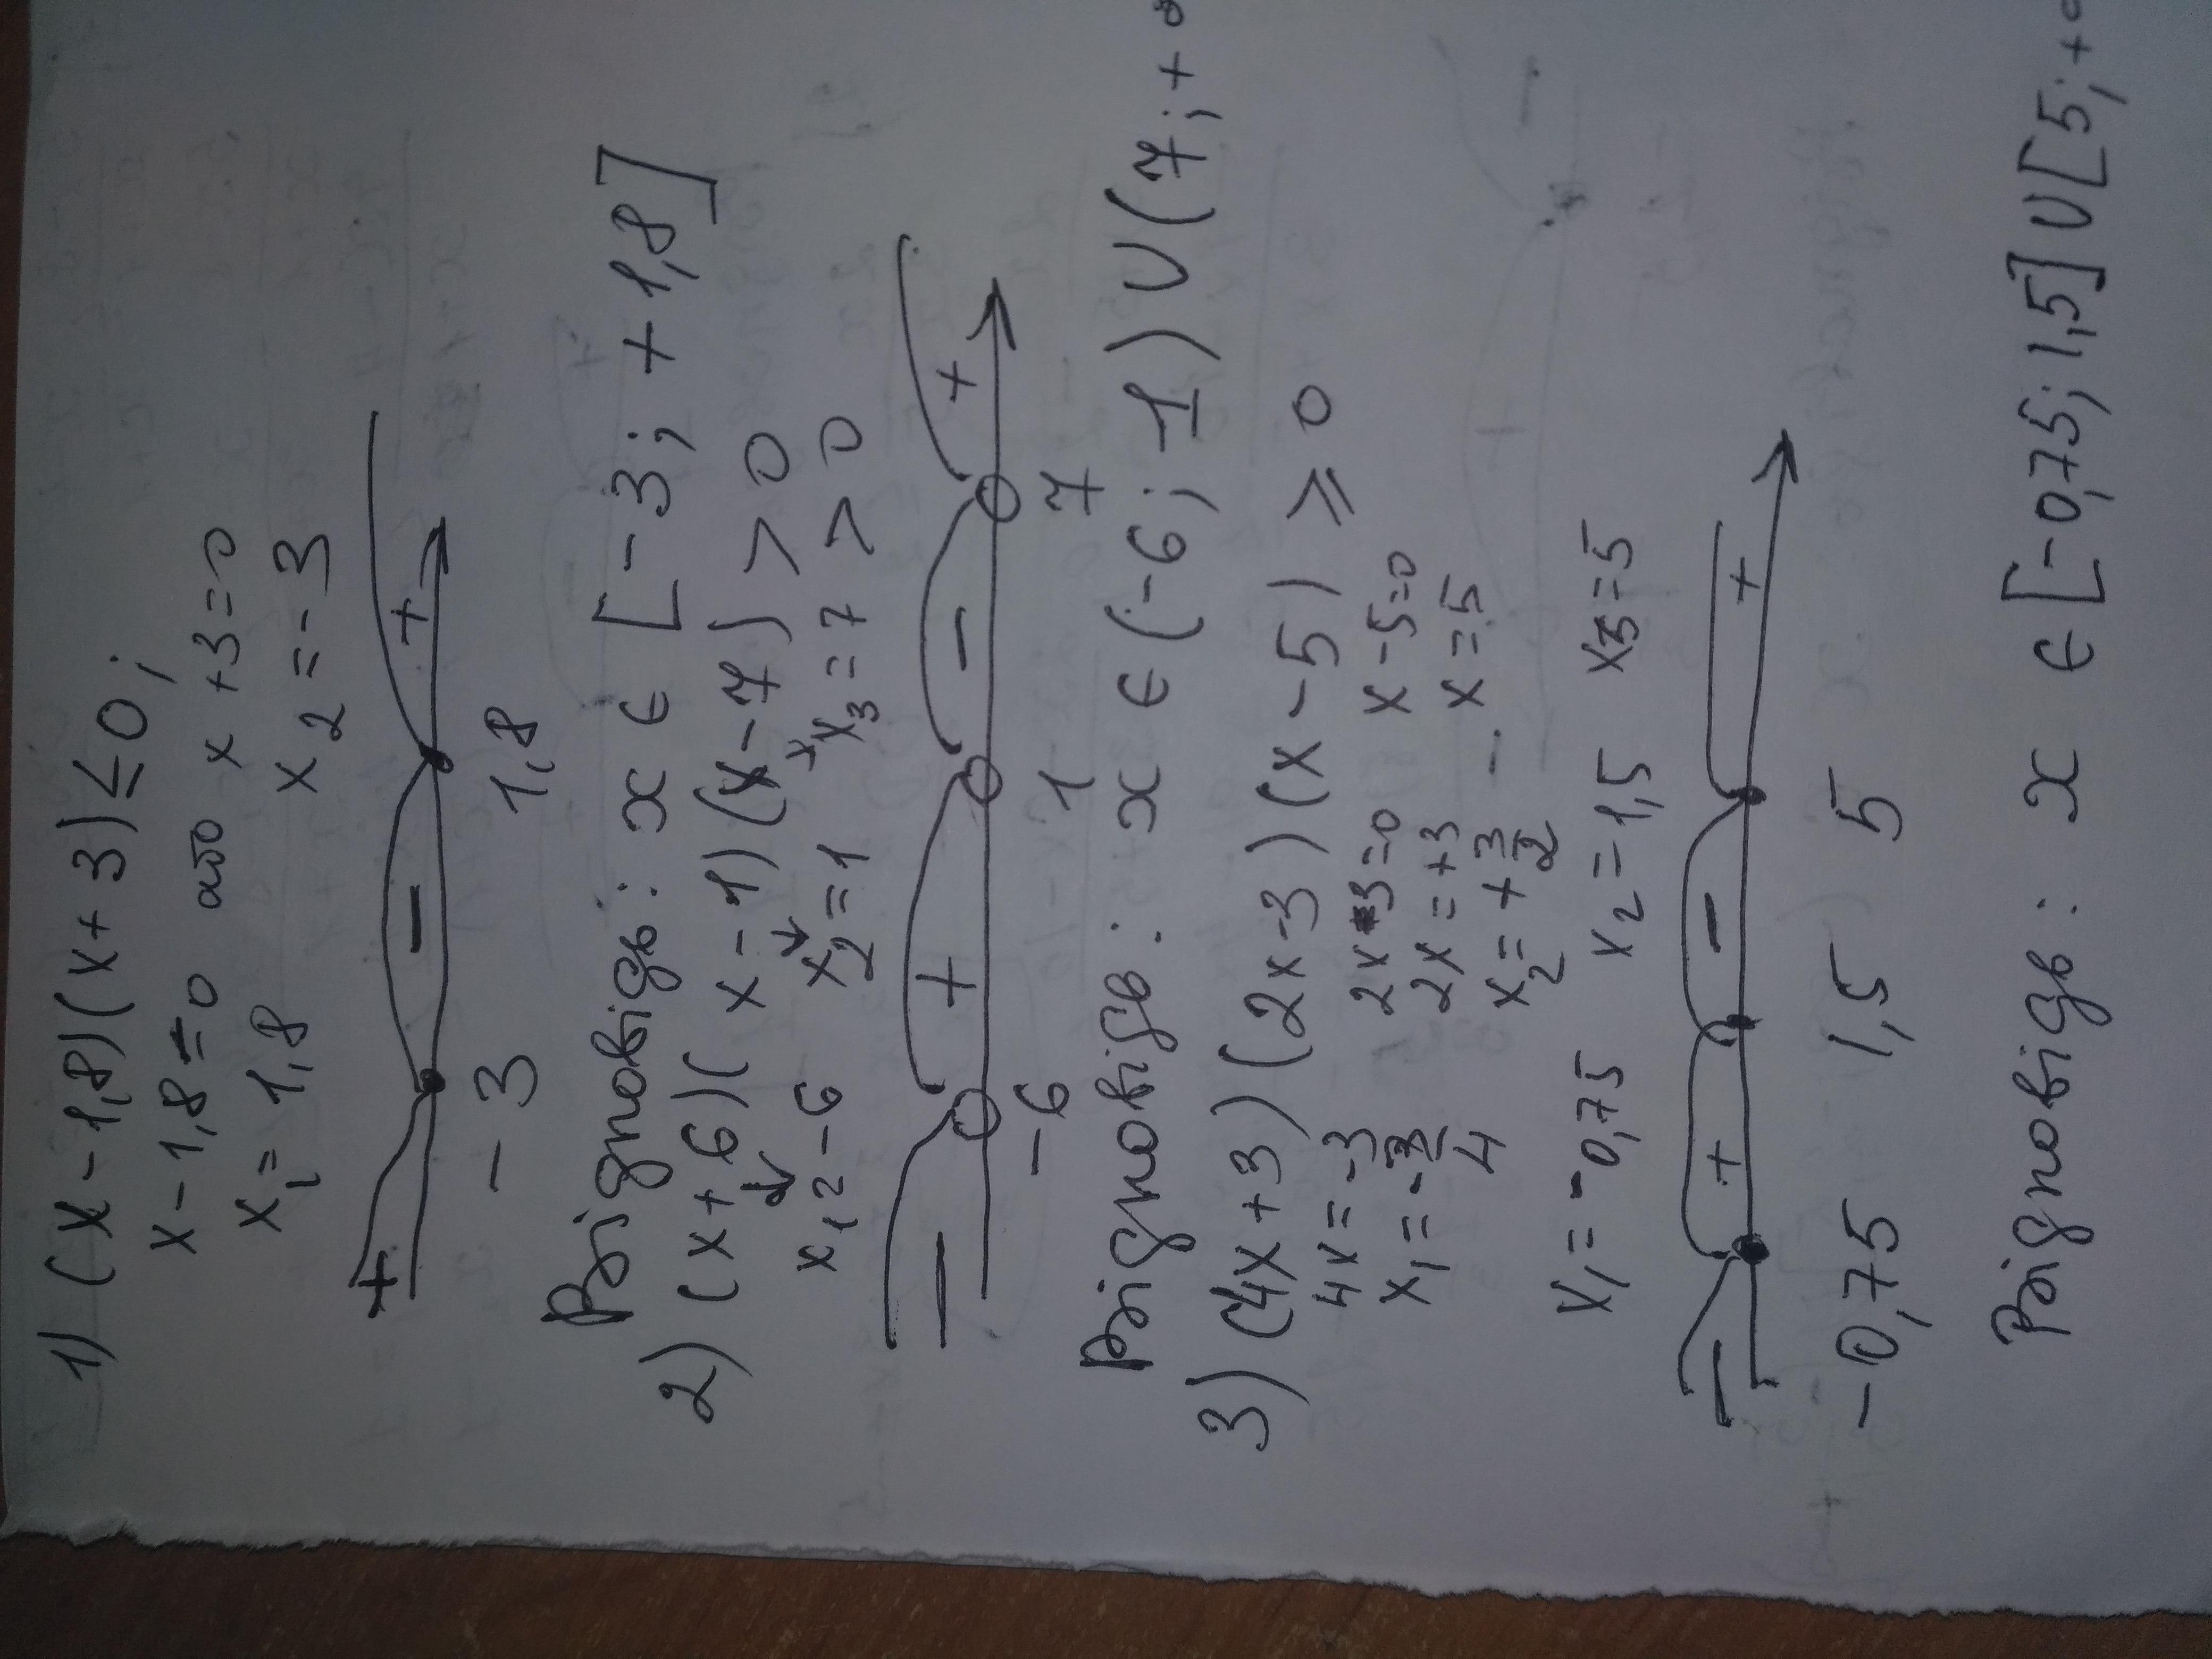 1) (x-1,8)(x+3)≤0;
x-1,8=0 або x+3=0
x₁=1,8 x₂=-3
+ - +
-3 1,8
Відповідь: x ∈ [-3; +1,8]
2) (x+6)(x-1)(x-7)>0
x₁=-6 x₂=1 x₃=7 >0
- + - +
-6 1 7
Відповідь: x ∈ (-6; -1) ∪ (7; +
3) (4x+3)(2x-3)(x-5) ≥ 0
4x=-3 2x-3=0 x-5=0
x₁=-3/4 2x=+3 x=5
x₂=+3/2
x₁=-0,75 x₂=1,5 x₃=5
- + - +
-0,75 1,5 5
Відповідь: x ∈ [-0,75; 1,5] ∪ [5; +